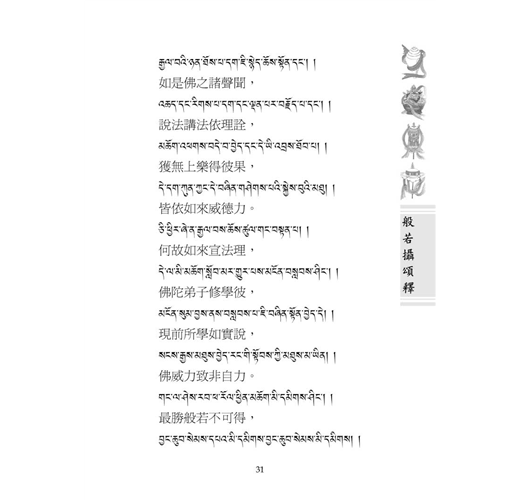 རྒྱལ་བའི་ཉན་ཐོས་པ་དག་ཇི་སྙེད་ཆོས་སྟོན་དང་། །
如是佛之諸聲聞，
འཆད་དང་རིགས་པ་དག་དང་ལྡན་པར་བརྗོད་པ་དང་། །
說法講法依理詮，
མཆོག་འཕགས་བདེ་བ་བྱེད་དང་དེ་ཡི་འབྲས་ཐོབ་པ། །
獲無上樂得彼果，
དེ་དག་ཀུན་ཀྱང་དེ་བཞིན་གཤེགས་པའི་སྐྱེས་བུའི་མཐུ། །
皆依如來威德力。
ཅི་ཕྱིར་ཞེ་ན་རྒྱལ་བས་ཆོས་ཚུལ་གང་བསྟན་པ། །
何故如來宣法理，
དེ་ལ་མི་མཆོག་སློབ་མར་གྱུར་པས་མངོན་བསླབས་ཤིང་། །
佛陀弟子修學彼，
མངོན་སུམ་བྱས་ནས་བསླབས་པ་ཇི་བཞིན་སྟོན་བྱེད་དེ། །
現前所學如實說，
སངས་རྒྱས་མཐུས་བྱེད་རང་གི་སྟོབས་ཀྱི་མཐུས་མ་ཡིན། །
佛威力致非自力。
གང་ལ་ཤེས་རབ་ཕ་རོལ་ཕྱིན་མཆོག་མི་དམིགས་ཤིང་། །
最勝般若不可得，
བྱང་ཆུབ་སེམས་དཔའ་མི་དམིགས་བྱང་ཆུབ་སེམས་མི་དམིགས། །
般若攝頌釋
31